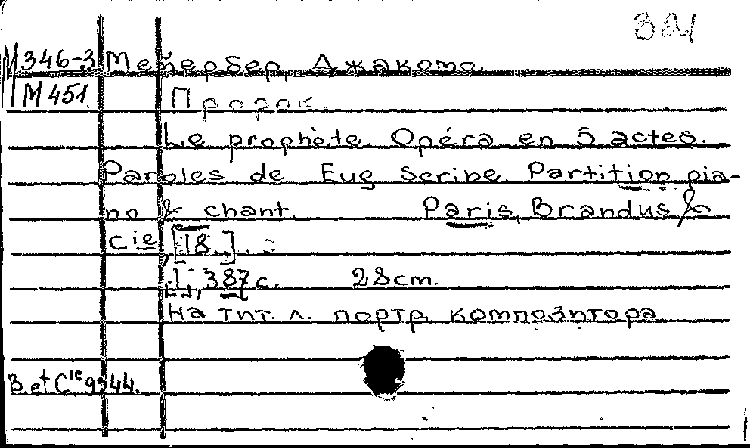 М346-3 Мейербер, Джакомо.
М451 Пророк.
Le prophète. Opéra en 5 actes.
Paroles de Eug Scribe. Partition pia-
no & chant. Paris, Brandus &
Cie, [18..].
[I], 387с. 28cm.
На тит. л. портр. композитора
B. et Cie 9344.